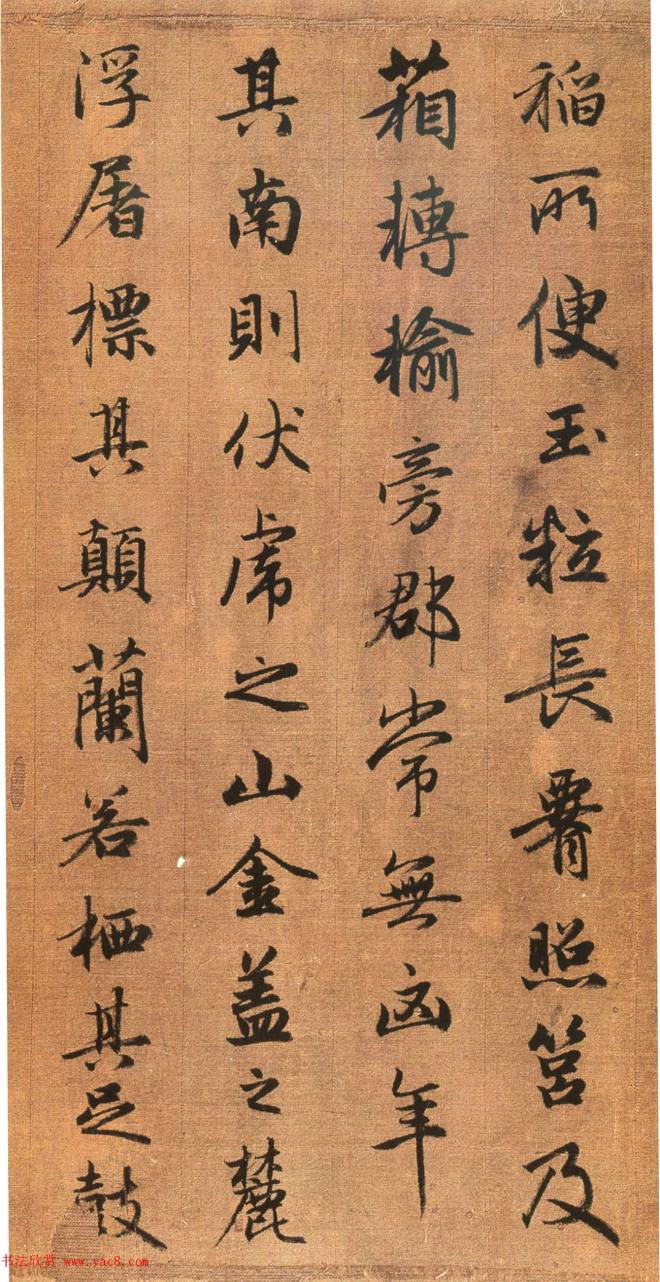 稻所便玉粒長腰照筥及
箱轉輸旁郡常無凶年
其南則伏虎之山金盖之麓
浮屠標其顛蘭若栖其足鼓
书法欣赏 www.yac8.com